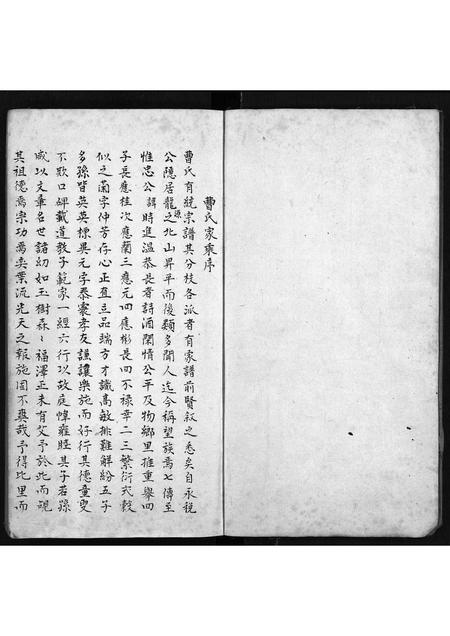 曹氏家乘序
曹氏有統宗譜其分枝各派者有家譜前賢叙之悉矣自承税
公隱居龍源之北山昇平而後顯多聞人迄今稱望族焉七傳至
惟忠公諱時進溫恭長者詩酒閑情公平及物鄉里推重舉四
子長應桂次應蘭三應元四應彬長四不禄幸二三繁衍式穀
似之蘭字仲芳存心正直立品端方才識高敏排難解紛五子
多孫皆英英標異元字泰寰孝友謹讓樂施而好行其德童叟
不欺口碑載道教子範家一經六行以故庭幃雍睦其子若孫
咸以文章名世諸幼如玉樹森〻福澤正未有艾予於此而覘
其祖德焉宗功焉奕業流光天之報施固不爽哉予得比里而